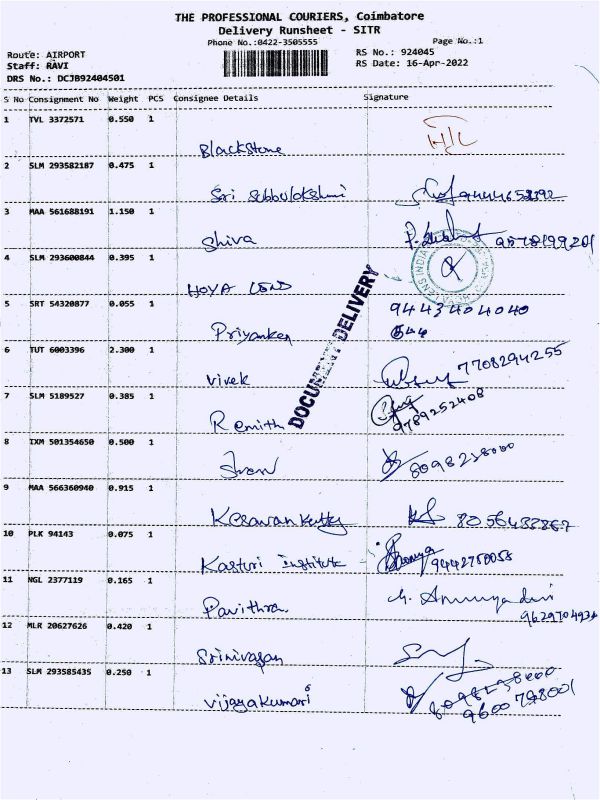 THE PROFESSIONAL COURIERS, Coimbatore
Delivery Runsheet - SITR
Phone No.:0422-3505555
Page No.:1
Route: AIRPORT
Staff: RAVI
DRS No.: DCJB92404501
RS No.: 924045
RS Date: 16-Apr-2022
S No Consignment No Weight PCS Consignee Details Signature
1 TVL 3372571 0.550 1
Blackstone H/L
2 SLM 293582187 0.475 1
Sri Subbulakshmi
3 MAA 561688191 1.150 1
Shiva 9578199201
4 SLM 293600844 0.395 1
HOYA LENS
5 SRT 54320877 0.055 1
9443404040
Priyanken 644
DOCUMENT DELIVERY
6 TUT 6003396 2.300 1
Vivek 7708294255
7 SLM 5189527 0.385 1
Remith 9789252408
8 IXM 501354650 0.500 1
8098238000
9 MAA 566360940 0.915 1
Kesavan Kutty 8056433867
10 PLK 94143 0.075 1
Kasturi Institute 9442750055
11 NGL 2377119 0.165 1
Pavithra
12 MLR 20627626 0.420 1
Srinivasan
13 SLM 293585435 0.250 1
8098238000
Vijayakumari 9600798001